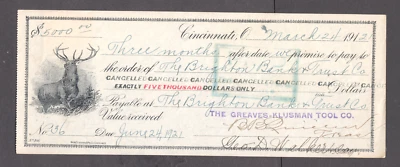 $5000 00 Cincinnati, O. March 24 1912
Three months after date we promise to pay to
the order of The Brighton Bank & Trust Co.
CANCELLED CANCELLED CANCELLED CANCELLED CANCELLED CANCELLED
EXACTLY FIVE THOUSAND DOLLARS ONLY Dollars
Payable at The Brighton Bank & Trust Co.
Value received THE GREAVES-KLUSMAN TOOL CO.
No. 136 Due June 24 1921